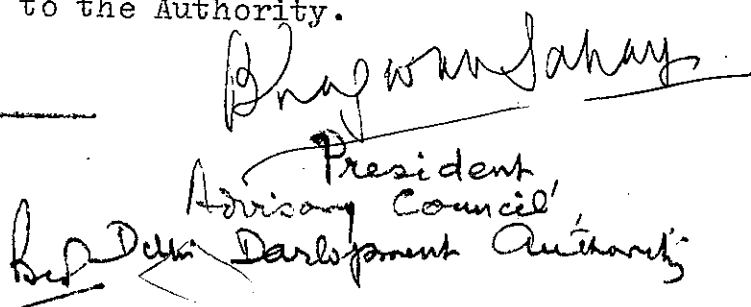 to the Authority.
Bhagwan Sahay
President
Advisory Council
Delhi Development Authority